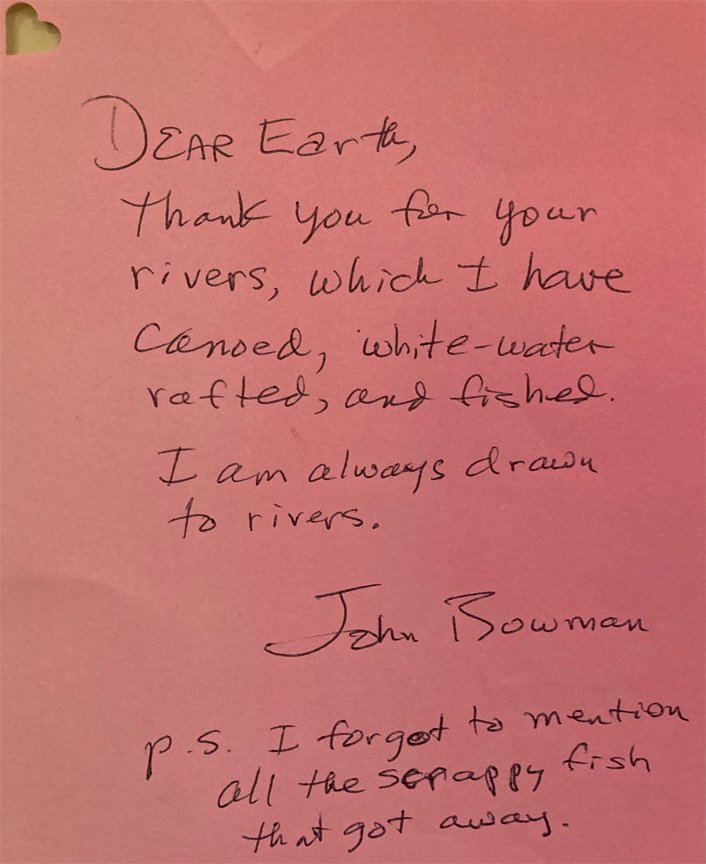 DEAR Earth,
Thank you for your
rivers, which I have
canoed, white-water
rafted, and fished.
I am always drawn
to rivers.
John Bowman
p.s. I forgot to mention
all the scrappy fish
that got away.